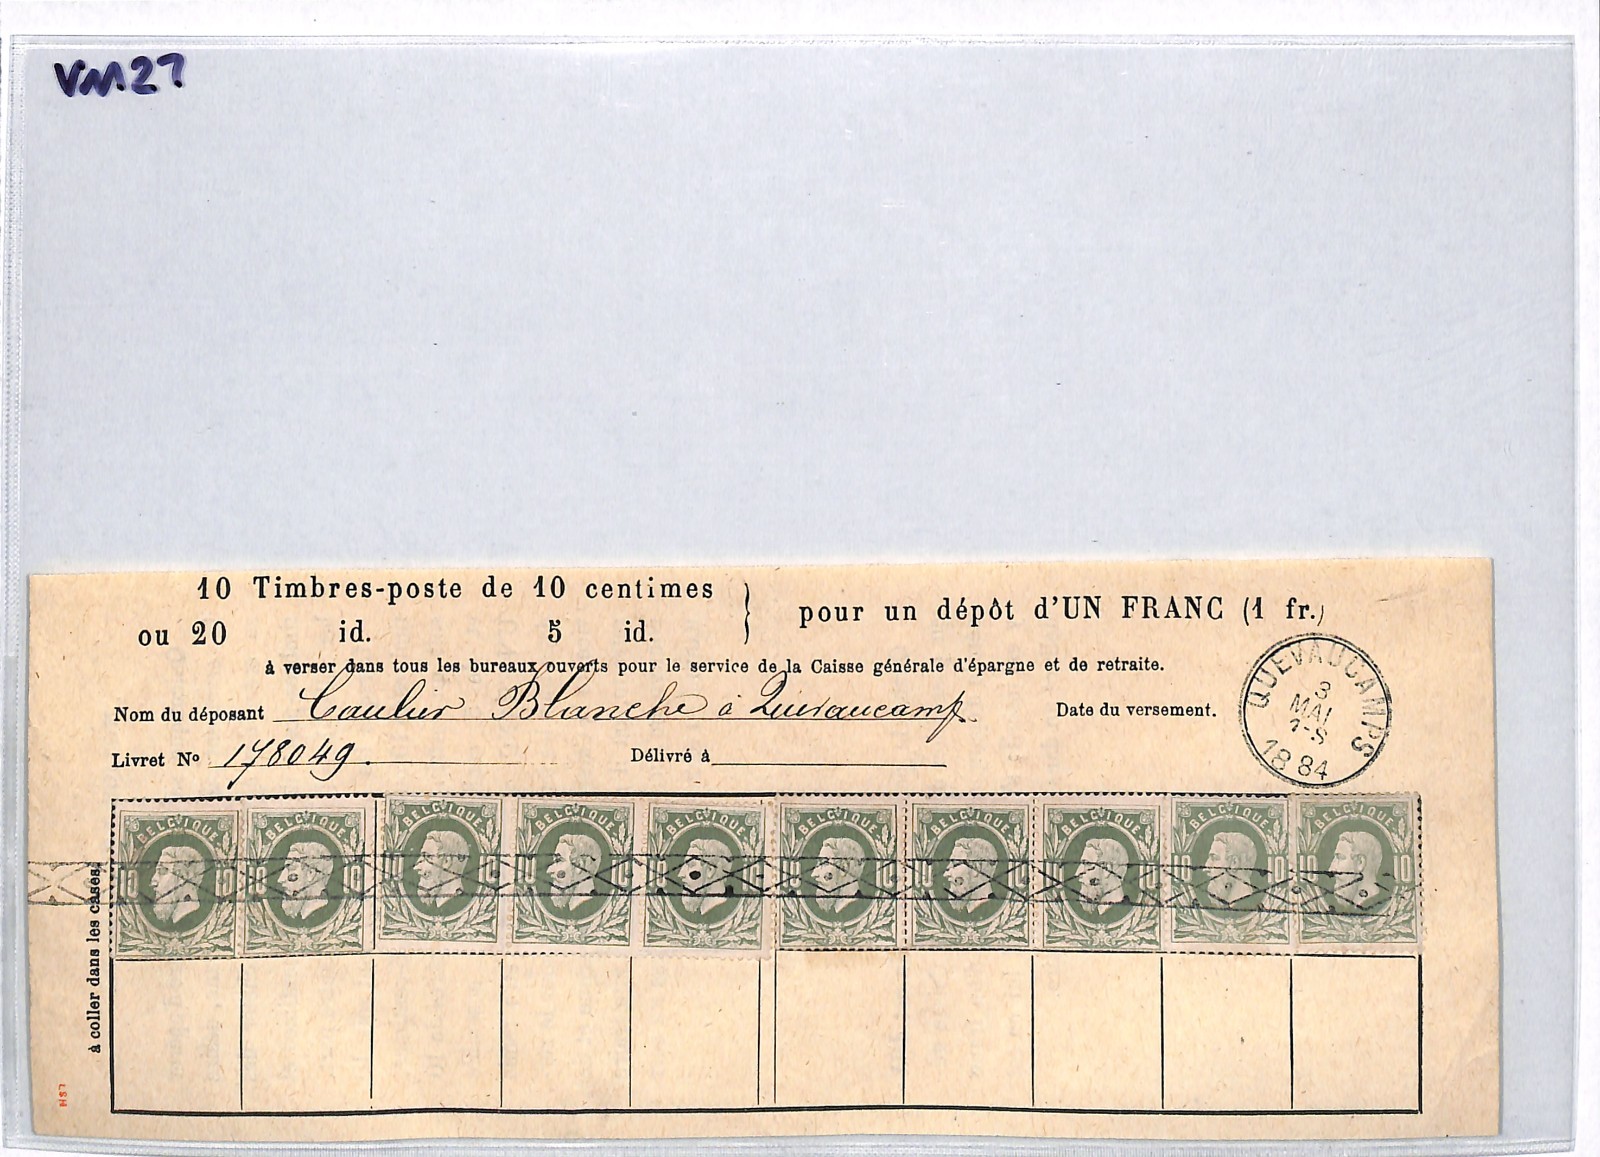 VM27
10 Timbres-poste de 10 centimes
ou 20 id. 5 id.
} pour un dépôt d'UN FRANC (1 fr.)
à verser dans tous les bureaux ouverts pour le service de la Caisse générale d'épargne et de retraite.
Nom du déposant Caulier Blanche à Quevaucamp
Date du versement.
QUEVAUCAMPS
3
MAI
1-S
1884
Livret No 178049.
Délivré à
à coller dans les cases.
BELGIQUE BELGIQUE BELGIQUE BELGIQUE BELGIQUE BELGIQUE BELGIQUE BELGIQUE BELGIQUE BELGIQUE
10 10 10 10 10 10 10 10 10 10 10 10 10 10 10 10 10 10 10 10
LSH